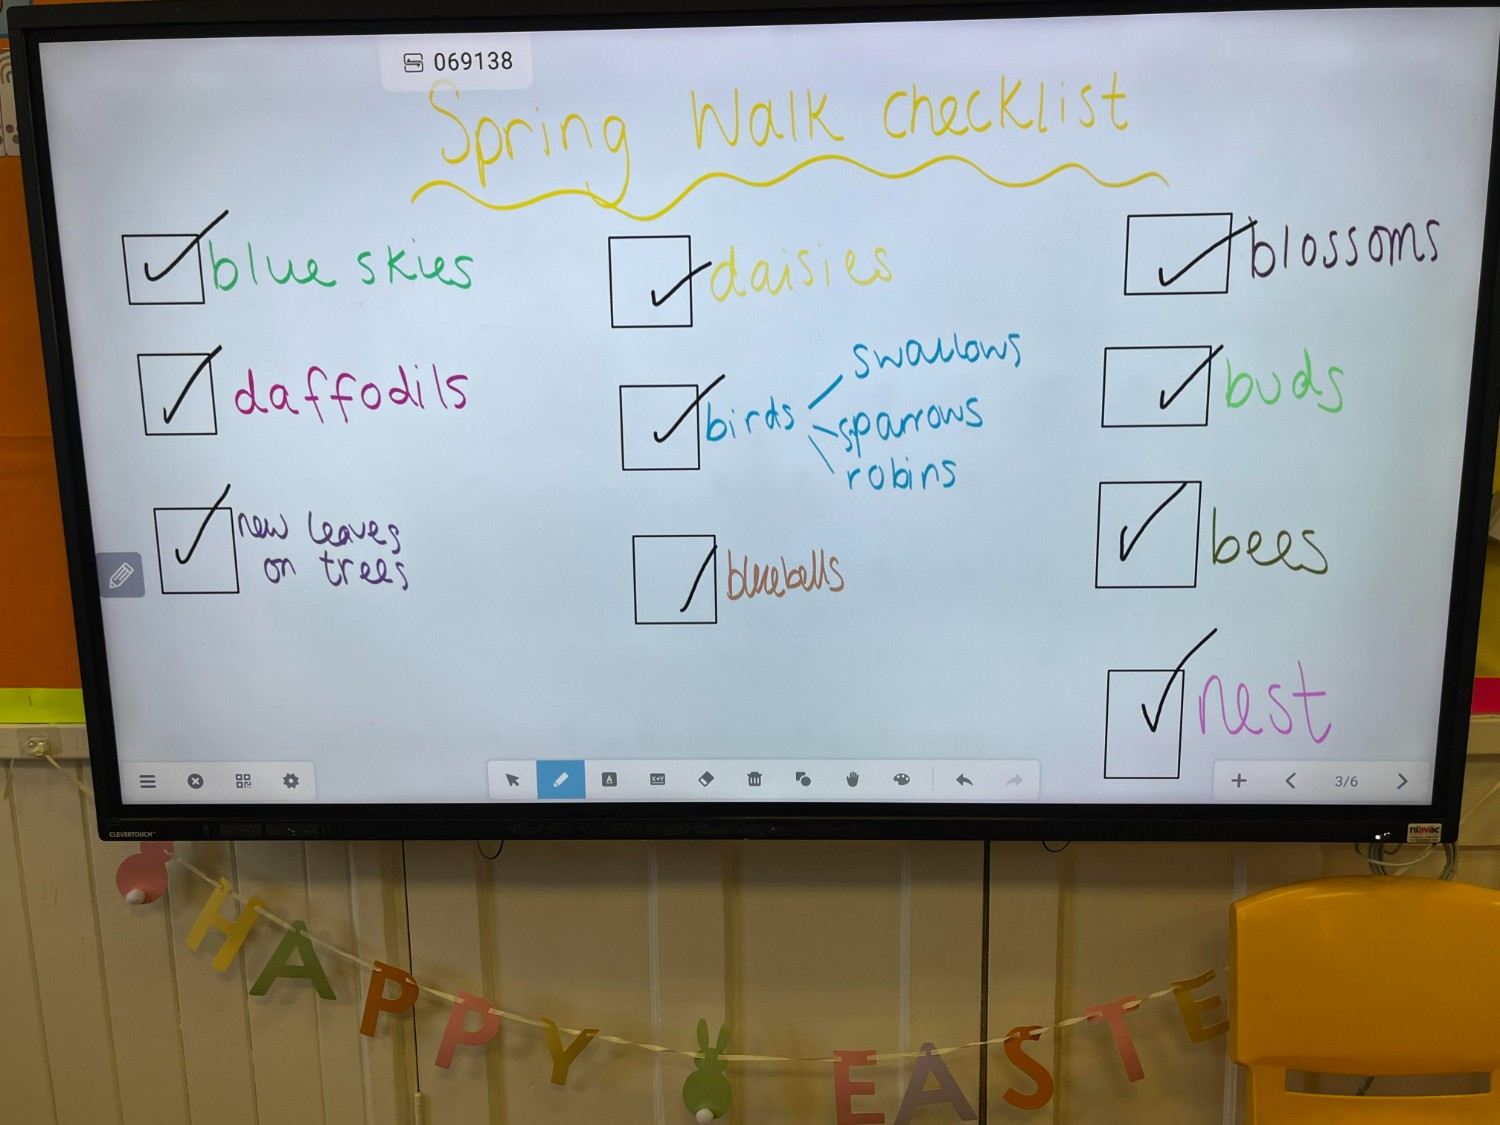 069138
Spring Walk checklist
blue skies
daffodils
new leaves
on trees
daisies
birds
swallows
sparrows
robins
bluebells
blossoms
buds
bees
nest
3/6
CLEVERTOUCH
niavac
HAPPY EASTE